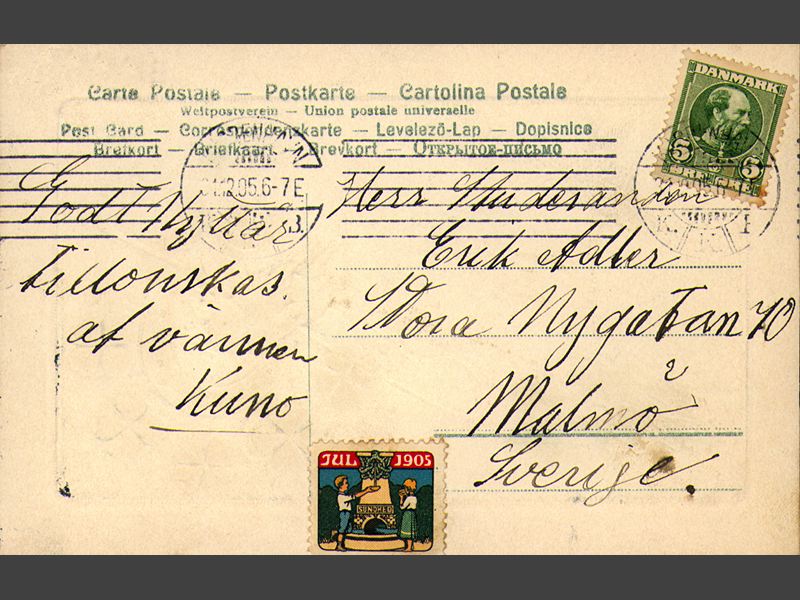 Carte Postale — Postkarte — Cartolina Postale
Weltpostverein — Union postale universelle
Post Card — Correspondenskarte — Levelező-Lap — Dopisnice
Brefkort — Briefkaart — Brevkort — Открытое-письмо
DANMARK
5 5
6-7E
Godt Nyttår
tillönskas
af vännen
Kuno
Herr Studeranden
Erik Adler
Stora Nygatan 70
Malmö
Sverige.
JUL 1905
SUNDHED